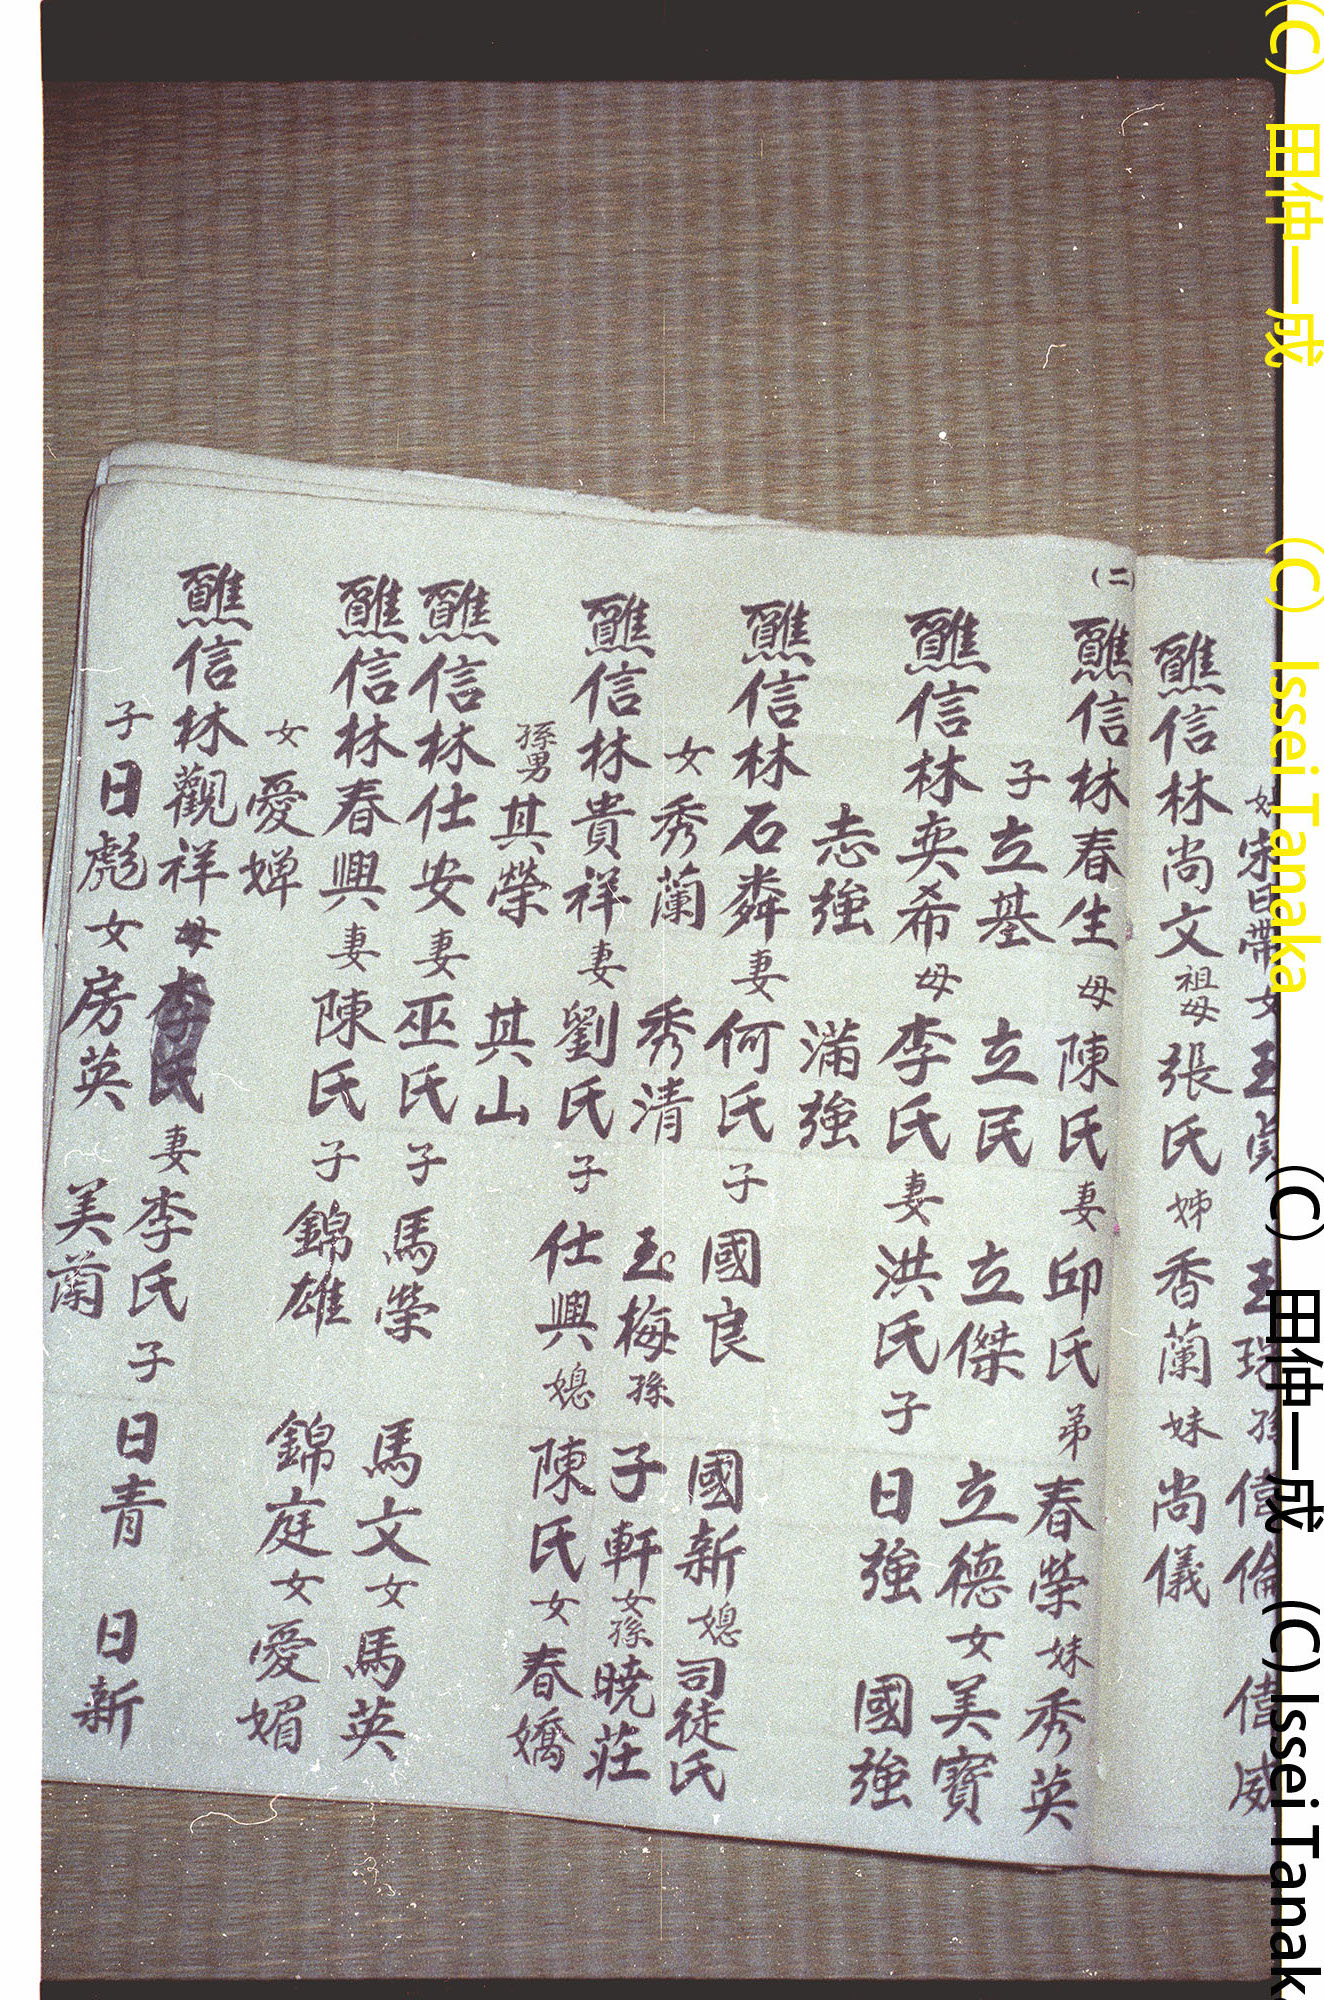 宋日帶 女 玉貞 玉瑅 孫 偉倫 偉威
醮信林尚文 祖母 張氏 姊 香蘭 妹 尚儀
(二)
醮信林春生 母 陳氏 妻 邱氏 弟 春榮 妹 秀英
子 立基 立民 立傑 立德 女 美寶
醮信林奕希 母 李氏 妻 洪氏 子 日強 國強
志強 滿強
醮信林石粦 妻 何氏 子 國良 國新 媳 司徒氏
女 秀蘭 秀清 玉梅 孫 子軒 女孫 曉莊
醮信林貴祥 妻 劉氏 子 仕興 媳 陳氏 女 春嬌
孫男 其榮 其山
醮信林仕安 妻 巫氏 子 馬榮 馬文 女 馬英
醮信林春興 妻 陳氏 子 錦雄 錦庭 女 愛媚
女 愛嬋
醮信林觀祥 母 李氏 妻 李氏 子 日青 日新
子 日彪 女 房英 美蘭
(C) 田仲一成 (C) Issei Tanaka
(C) 田仲一成 (C) Issei Tanaka